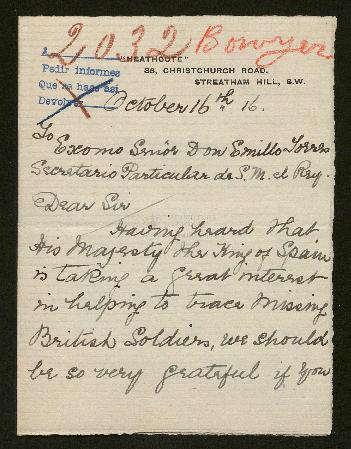 2032 Bowyer
"HEATHCOTE"
Pedir informes
36, CHRISTCHURCH ROAD,
Que se haga así
STREATHAM HILL, S.W.
October 16th 16.
To
Exomo Señor Don Emilio Torres
Secretario Particular de S. M. el Rey.
Dear Sir
Having heard that
His Majesty the King of Spain
is taking a great interest
in helping to trace missing
British Soldiers, we should
be so very grateful if you